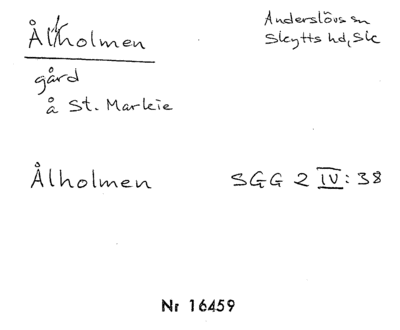 Ålholmen
Anderslövs sn
Skytts hd, Sk
gård
å St. Markie
Ålholmen SGG 2 IV: 38
Nr 16459